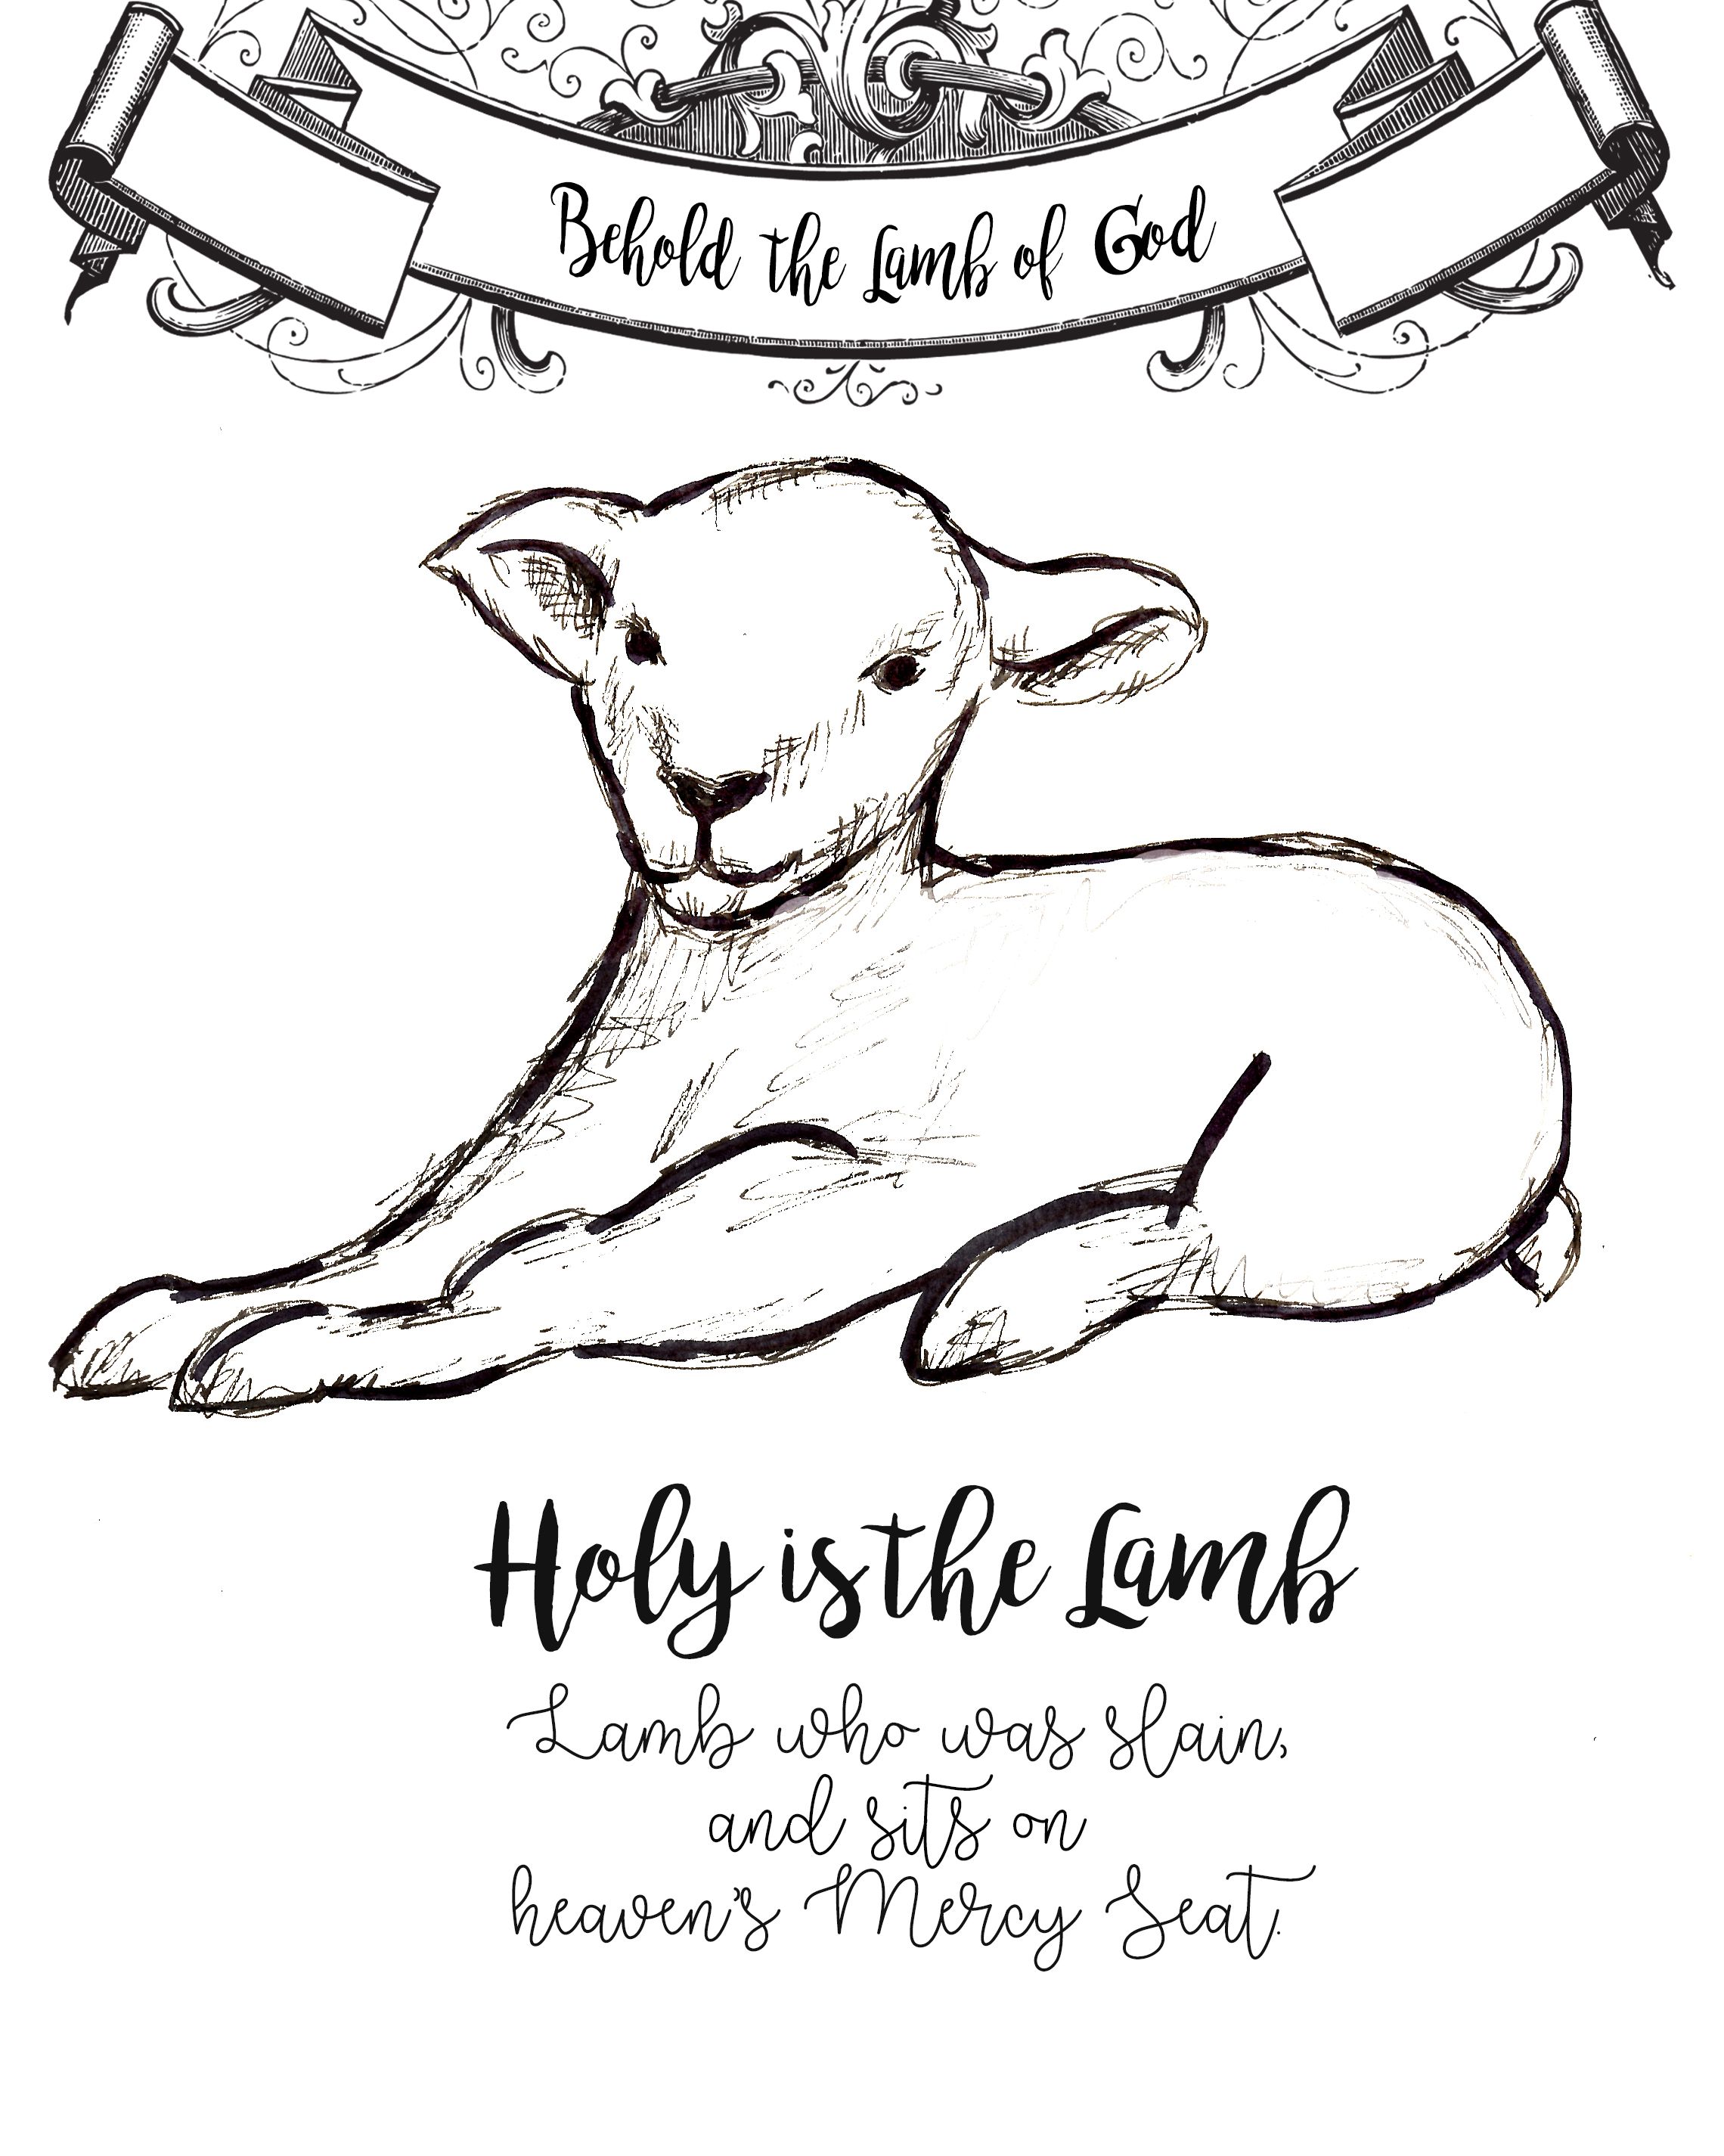 Behold the Lamb of God
Holy is the Lamb
Lamb who was slain,
and sits on
heaven's Mercy Seat.